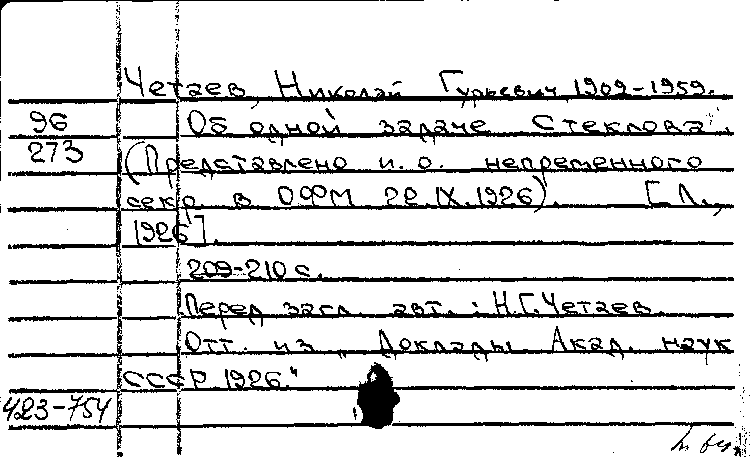 Четаев, Николай Гурьевич, 1902-1959.
96 Об одной задаче Стеклова.
273 (Представлено и. о. непременного
секр. в ОФМ 22.IX.1926). [Л.,
1926].
209-210 с.
Перед загл. авт.: Н.Г.Четаев.
Отт. из „Доклады Акад. наук
СССР 1926."
423-754